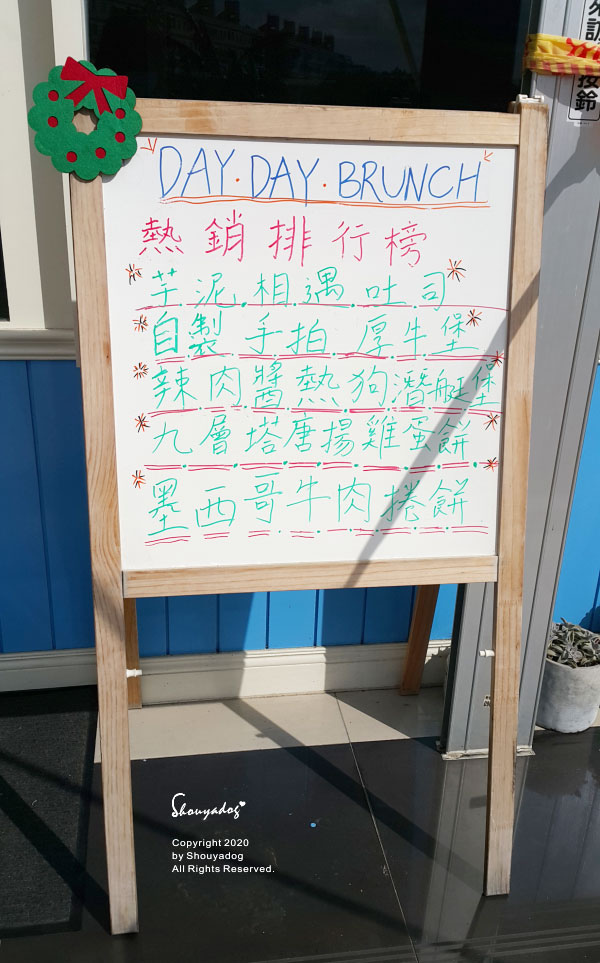 外訪
按鈴
DAY·DAY·BRUNCH
熱銷排行榜
芋泥相遇吐司
自製手拍厚牛堡
辣肉醬熱狗潛艇堡
九層塔唐揚雞蛋餅
墨西哥牛肉捲餅
Shouyadog
Copyright 2020
by Shouyadog
All Rights Reserved.